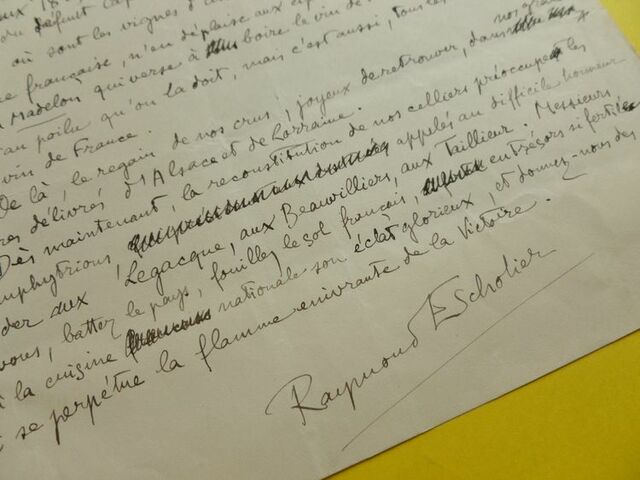 du défunt
où sont les vignes d'
française, n'en déplaise aux
Madelon qui verse à boire le vin de
au poilu qu'on la doit, mais c'est aussi, tous les
vin de France.
De là, le regain de nos crus, joyeux de retrouver, dans nos
res délivrés d'Alsace et de Lorraine.
Dès maintenant, la reconstitution de nos celliers préoccupe les
mphytrions appelés au difficile honneur
der aux Legacque, aux Beauvilliers, aux Taillieur. Messieurs
vous, battez le pays, fouillez le sol français, en trésors si fertile
à la cuisine nationale son éclat glorieux, et donnez-nous des
se perpétue la flamme enivrante de la Victoire.
Raymond Escholier